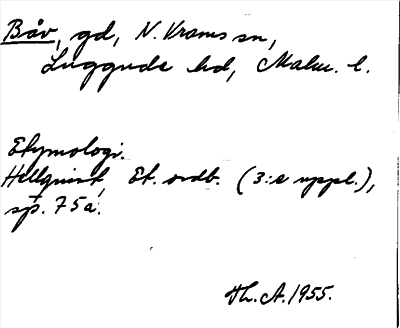 Båv, gd, N. Vrams sn,
Luggude hd, Malm. l.
Etymologi.
Hellquist, Et. ordb. (3:e uppl.),
sp. 75a.
Th. A. 1955.